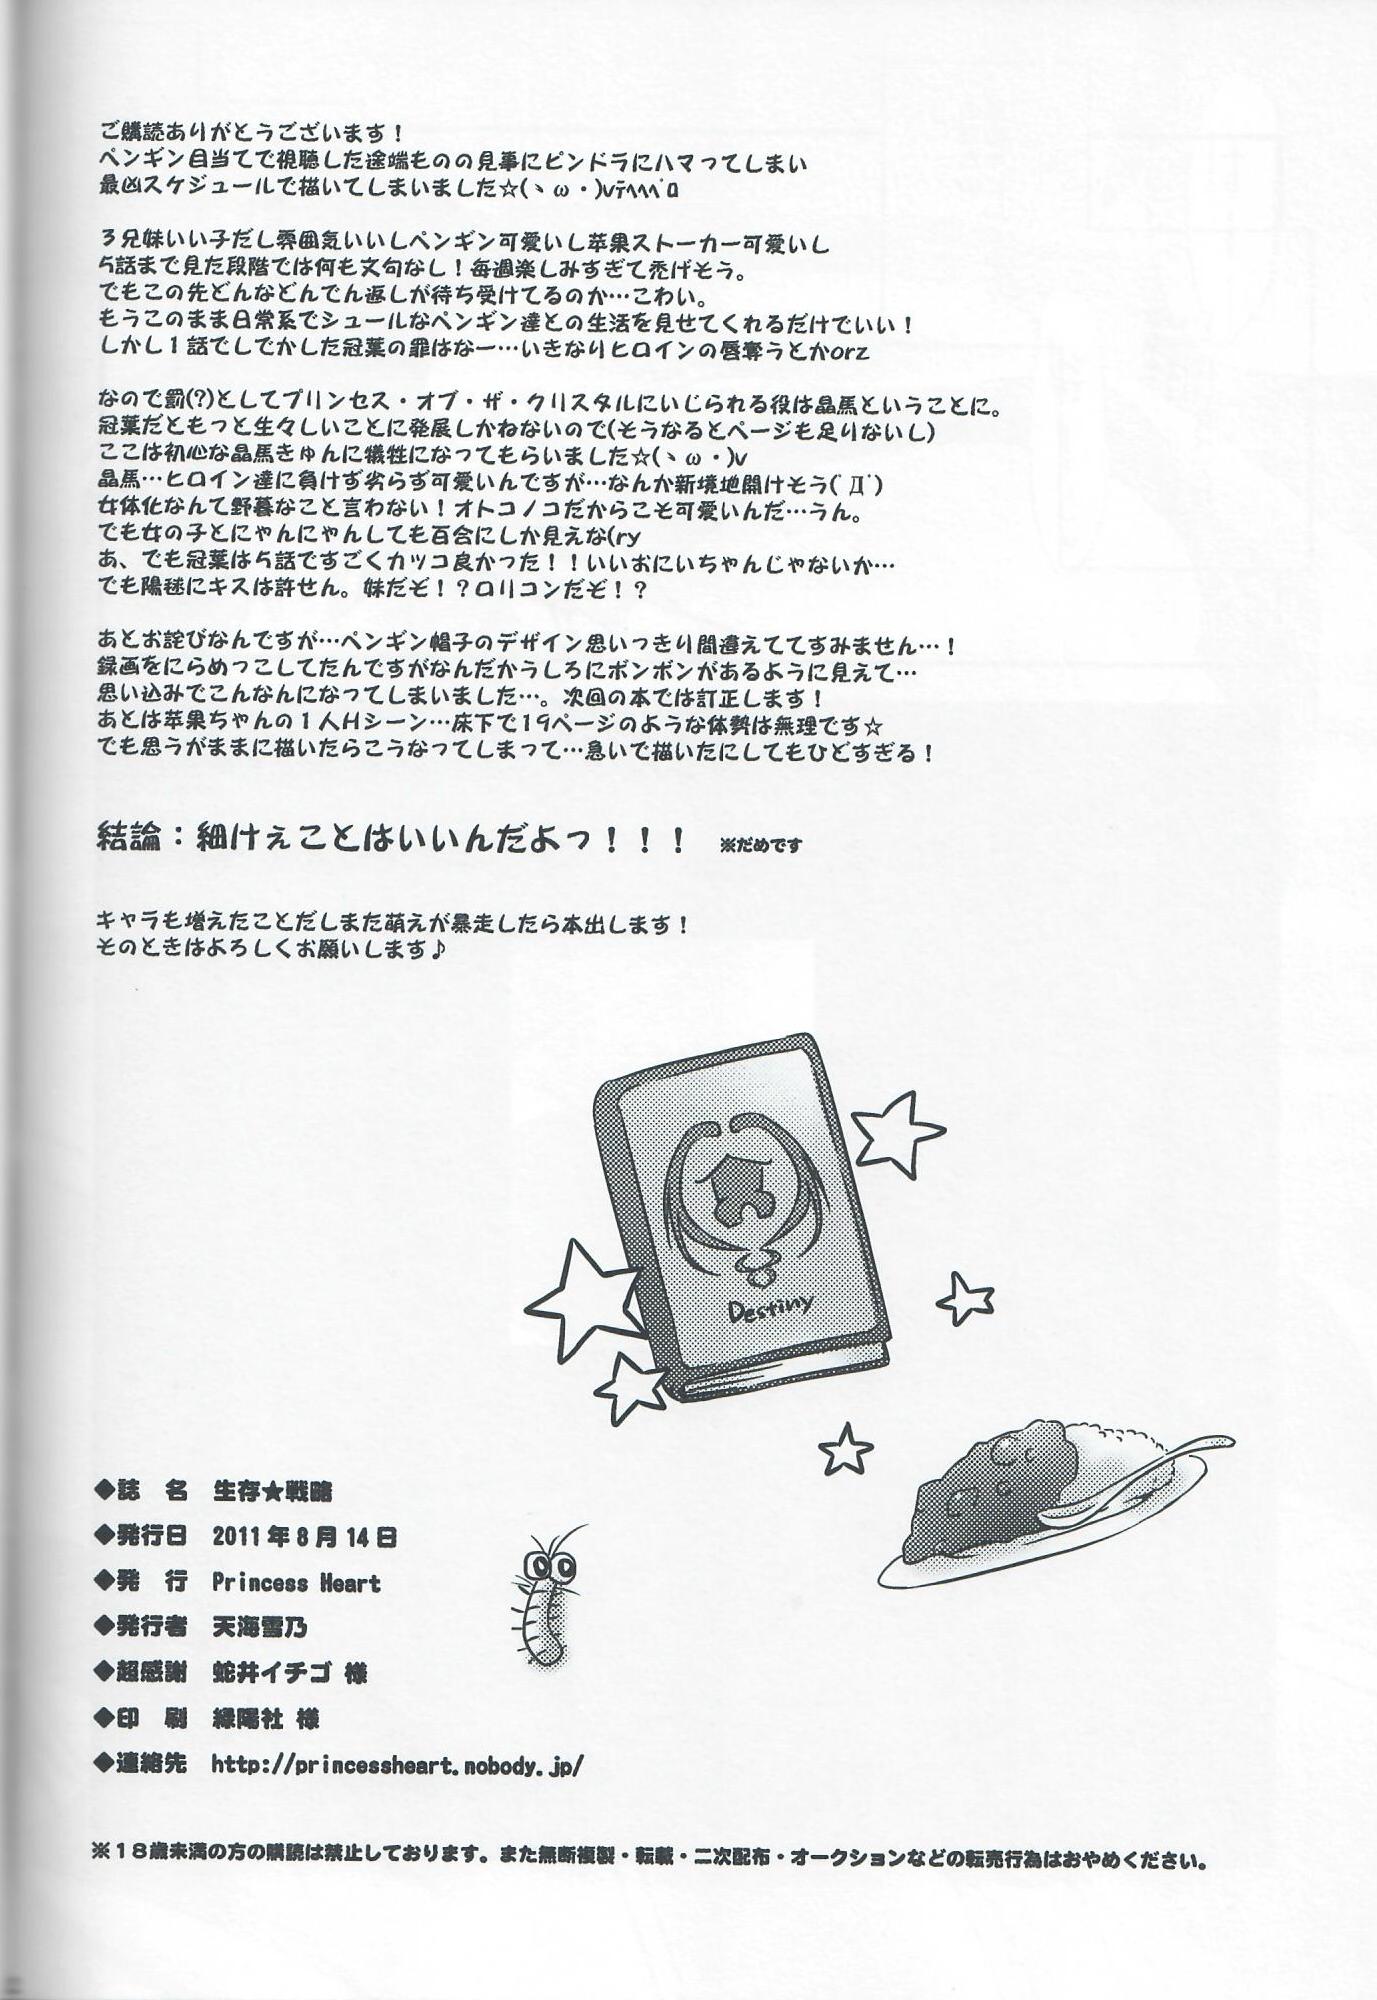 ご購読ありがとうございます！
ペンギン目当てで視聴した途端ものの見事にピンドラにハマってしまい
最凶スケジュールで描いてしまいました☆(ヽω・)vﾃﾍﾍﾍﾟﾛ
３兄妹いい子だし雰囲気いいしペンギン可愛いし苹果ストーカー可愛いし
５話まで見た段階では何も文句なし！毎週楽しみすぎて禿げそう。
でもこの先どんなどんでん返しが待ち受けてるのか…こわい。
もうこのまま日常系でシュールなペンギン達との生活を見せてくれるだけでいい！
しかし１話でしでかした冠葉の罪はなー…いきなりヒロインの唇奪うとかorz
なので罰(?)としてプリンセス・オブ・ザ・クリスタルにいじられる役は晶馬ということに。
冠葉だともっと生々しいことに発展しかねないので(そうなるとページも足りないし)
ここは初心な晶馬きゅんに犠牲になってもらいました☆(ヽω・)v
晶馬…ヒロイン達に負けず劣らず可愛いんですが…なんか新境地開けそう(ﾟДﾟ)
女体化なんて野暮なこと言わない！オトコノコだからこそ可愛いんだ…うん。
でも女の子とにゃんにゃんしても百合にしか見えな(ry
あ、でも冠葉は５話ですごくカッコ良かった！！いいおにいちゃんじゃないか…
でも陽毬にキスは許せん。妹だぞ！？ロリコンだぞ！？
あとお詫びなんですが…ペンギン帽子のデザイン思いっきり間違えててすみません…！
録画をにらめっこしてたんですがなんだかうしろにボンボンがあるように見えて…
思い込みでこんなんになってしまいました…。次回の本では訂正します！
あとは苹果ちゃんの１人Hシーン…床下で19ページのような体勢は無理です☆
でも思うがままに描いたらこうなってしまって…急いで描いたにしてもひどすぎる！
結論：細けぇことはいいんだよっ！！！ ※だめです
キャラも増えたことだしまた萌えが暴走したら本出します！
そのときはよろしくお願いします♪
Destiny
◆誌　名　生存★戦略
◆発行日　2011年8月14日
◆発　行　Princess Heart
◆発行者　天海雪乃
◆超感謝　蛇井イチゴ 様
◆印　刷　緑陽社 様
◆連絡先　http://princessheart.nobody.jp/
※１８歳未満の方の購読は禁止しております。また無断複製・転載・二次配布・オークションなどの転売行為はおやめください。